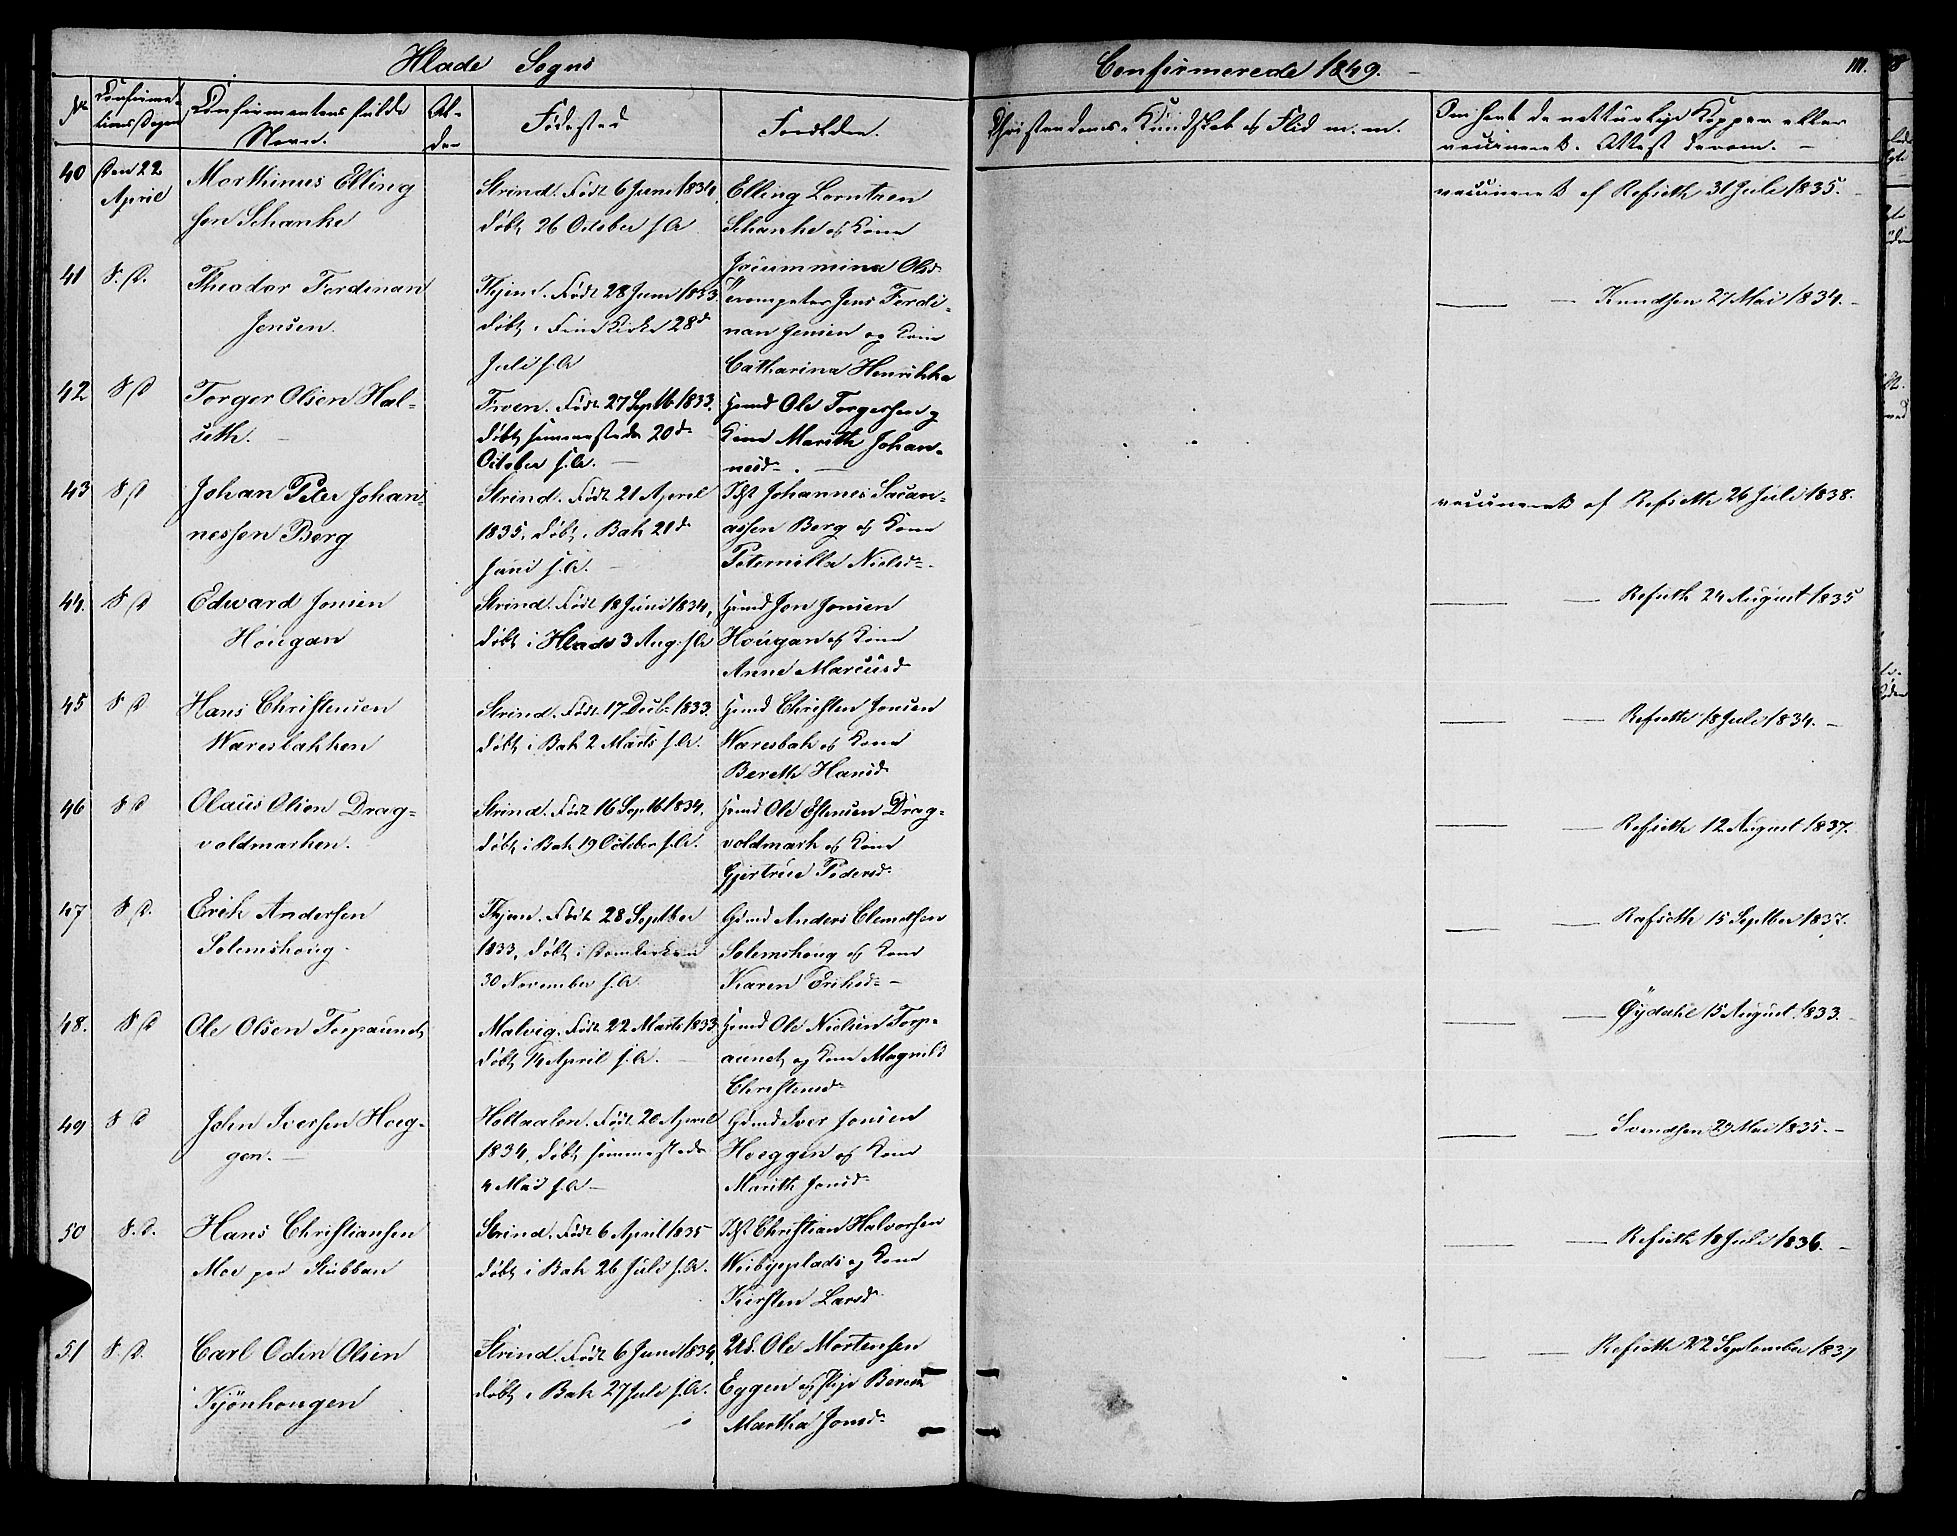 Hlade Sogns
Confirmerede 1849.
111.
No
Confirma-
tions Dagen
Confirmantens fulde
Navn.
Al-
der
Fødested
Forældre.
Christendoms-Kundskab og Flid m. m.
Om havt de naturlige Kopper eller
vaccineret. Attest derom.
40
Den 22
April
Morthinus Elling
sen Schanke
Strind. Født 6 Juni 1834,
døbt 26 October s. A.
Elling Lorntzen
Schanke og Kone
Jocummina Olsd.
vaccineret af Refseth 31 Juli 1835.
41
S. D.
Theodor Ferdinan
Jensen.
Thjem. Født 28 Juni 1833
døbt i Frue Kirke 28de
Juli s. A.
Trompeter Jens Ferdi-
nan Jensen og Kone
Catharina Henrikka
Knudsen 27 Mai 1834.
42
S D
Torger Olsen Hal-
seth.
Froen. Født 27 Septb 1833.
døbt sammesteds 20de
October s. A.
Huusmd Ole Torgersen og
Kone Marith Johan-
nesd.
43
S D
Johan Peter Johan-
nessen Berg
Strind. Født 21 April
1835, døbt i Bak 21de
Juni s. A.
Johannes
assen Berg og Kone
Peternilla Nielsd.
vaccineret af Refseth 26 Juli 1838.
44
S D
Edward Jonsen
Hougan
Strind. Født 18 Juni 1834,
døbt i Hlade 3 Aug. s. A
Huusmd Jon Jonsen
Hougan og Kone
Anne Marcusd.
Refseth 24 August 1835
45
S D
Hans Christensen
Waresbakken
Strind. Født 17 Decbr 1833.
døbt i Bak 2 Marts s. A.
Huusmd Christen Jonsen
Waresbak og Kone
Bereth Hansd.
Refseth 18 Juli 1834.
46
S D
Olaus Olsen Drag-
voldmarken.
Strind. Født 16 Septb 1834,
døbt i Bak 19 October s. A.
Huusmd Ole Estensen Drag-
voldmark og Kone
Gjertrue Pedersd.
Refseth 12 August 1837.
47
S D.
Erik Andersen
Solemshoug.
Thjem. Født 28 September
1833, døbt i Domkirken
30 November s. A.
Gaardmd Anders Clemetsen
Solemshoug og Kone
Karen Eriksd.
Refseth 15 Septbr 1837.
48.
S D
Ole Olsen Torpaunet
Malvig. Født 22 Marts 1833
døbt 14 April s. A.
Huusmd Ole Nielsen Torp-
aunet og Kone Magnild
Christensd.
Øydahl 15 August 1833.
49
S D
John Iversen Hoeg-
gen.
Holtaalen. Født 20 April
1834, døbt sammesteds
4 Mai s. A.
Gaardmd Iver Jonsen
Hoeggen og Kone
Marith Jonsd.
Svendsen 29 Mai 1835.
50
S. D.
Hans Christiansen
Moe paa Stubban
Strind. Født 6 April 1835
døbt i Bak 26 Juli s. A.
Christian Halvorsen
Weibyeplads og Kone
Kirsten Larsd.
Refseth 18 Juli 1836.
51
S. D.
Carl Odin Olsen
Kjönhougen
Strind. Født 6 Juni 1834,
døbt i Bak 27 Juli s. A.
Ole Mortensen
Eggen og Pige Bereth
Martha Jonsd.
Refseth 22 September 1837